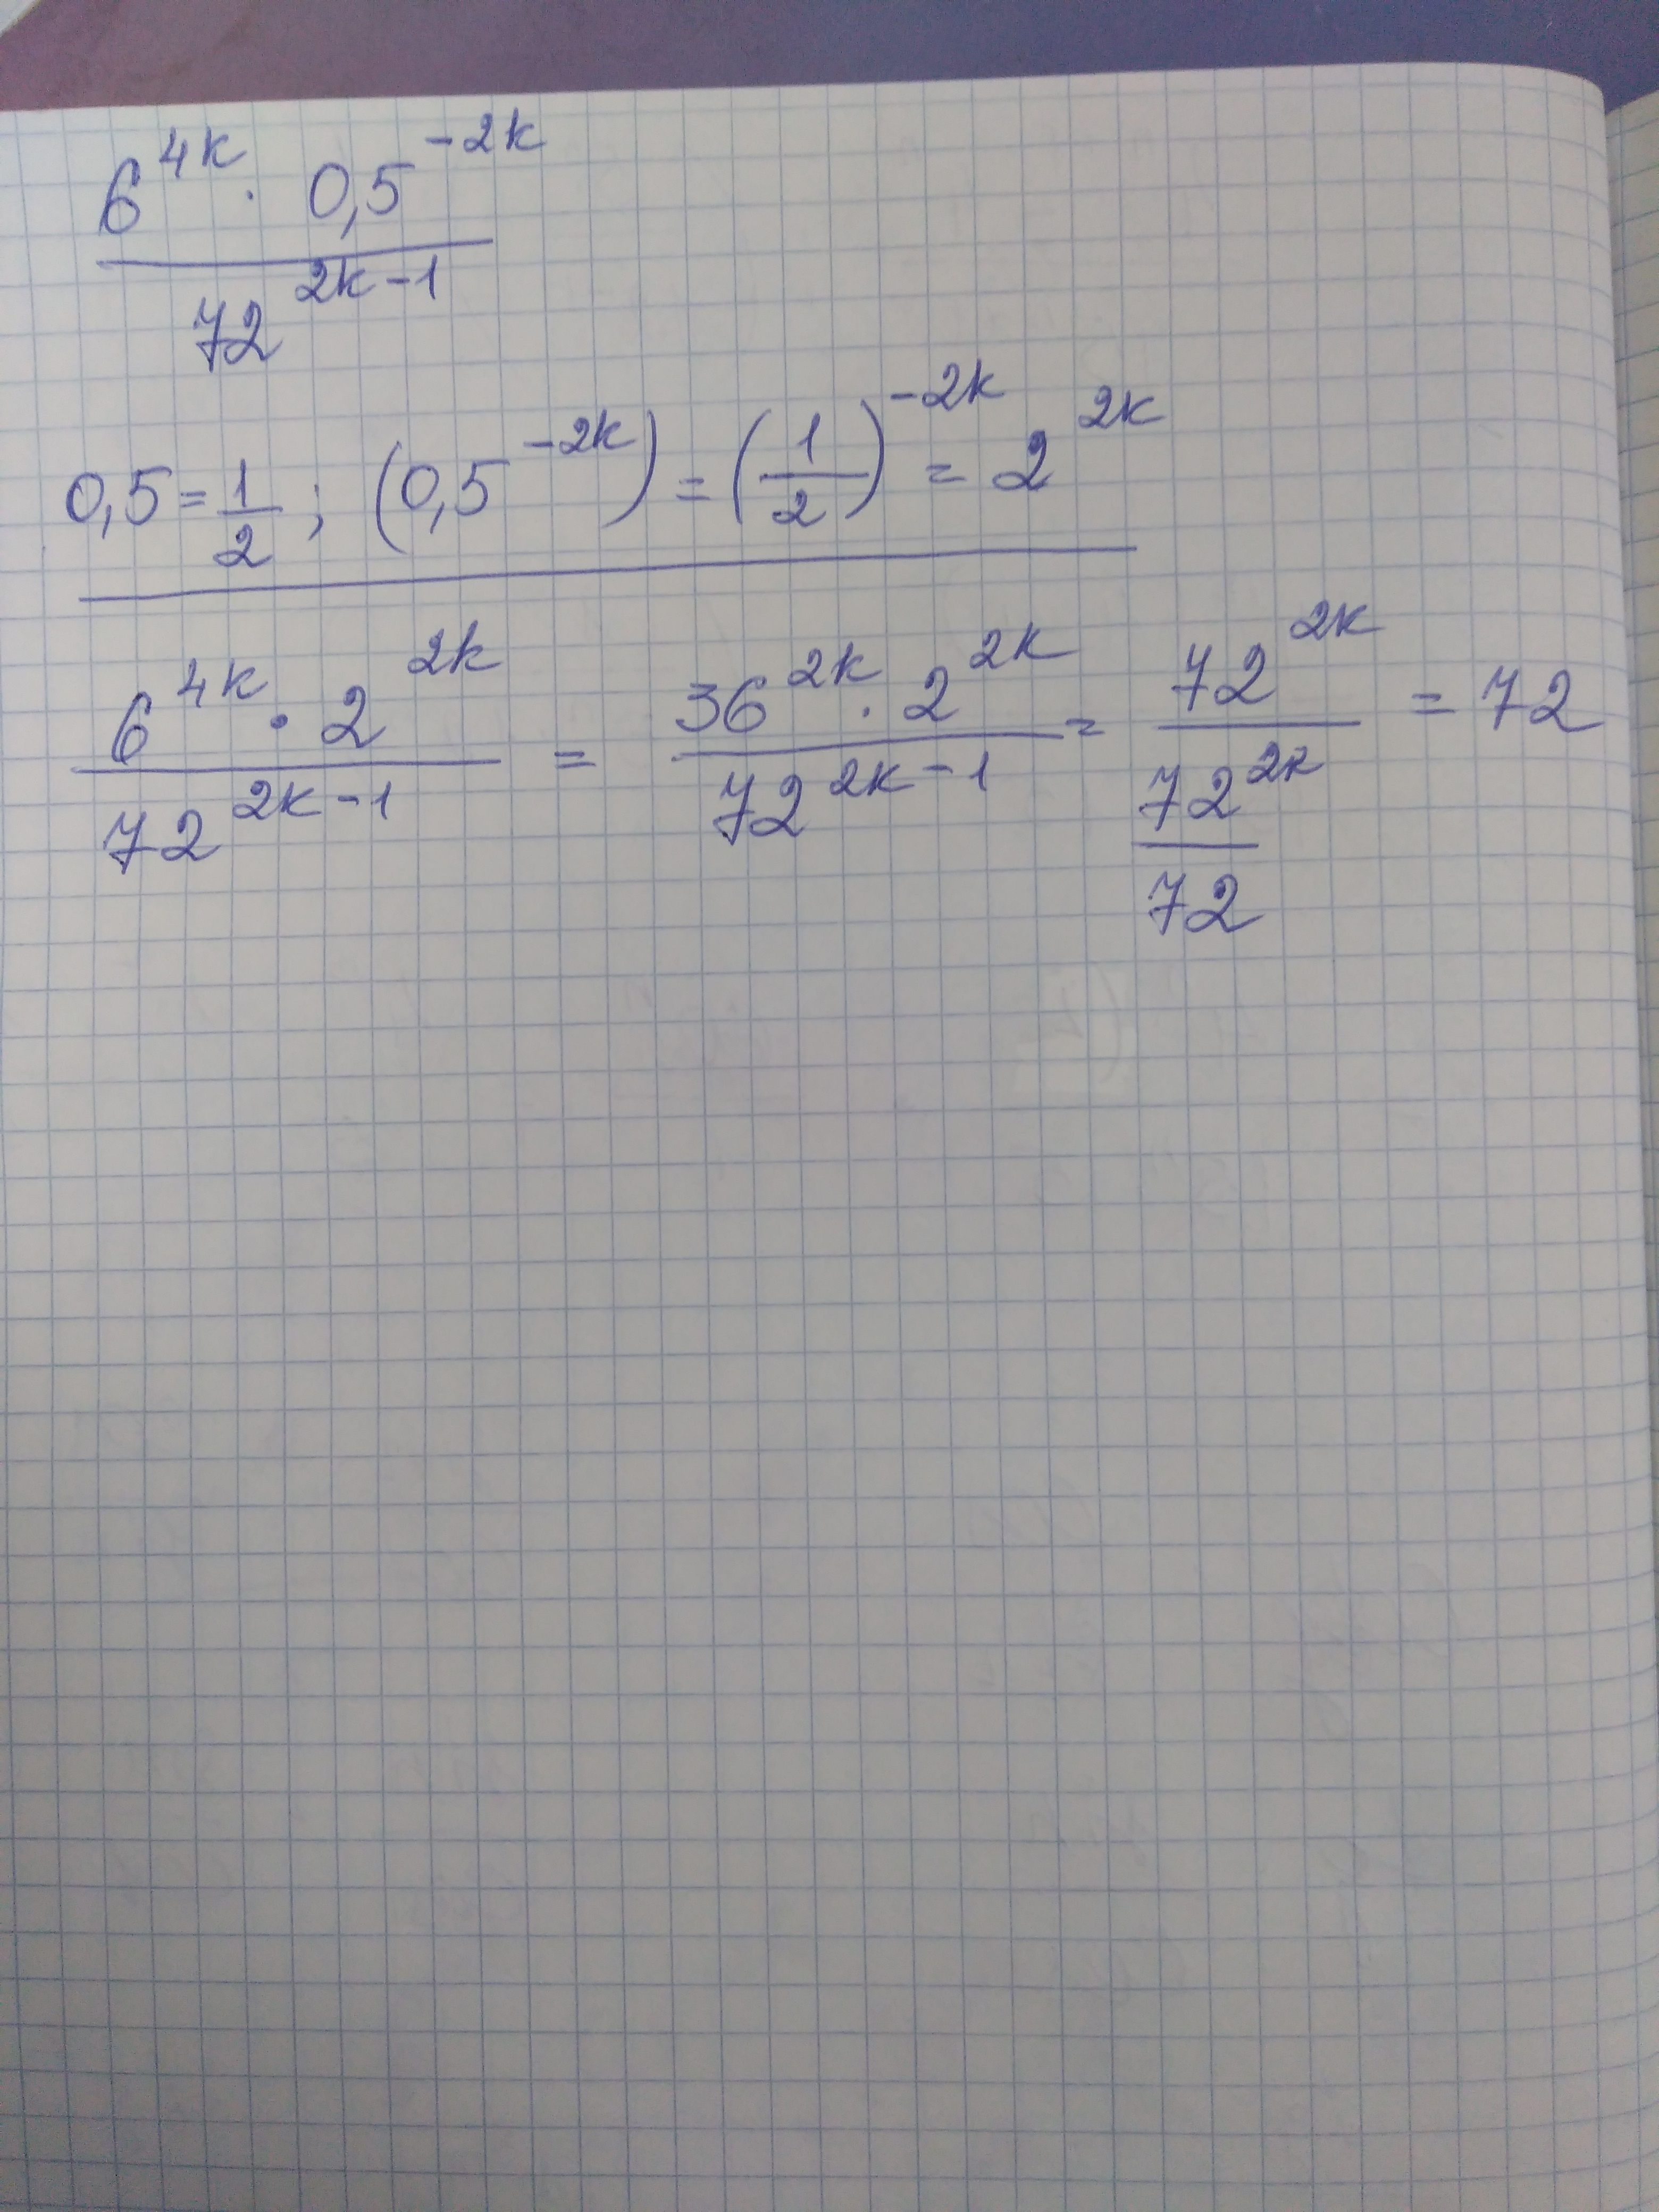 6^{4k} · 0,5^{-2k}
72^{2k-1}
0,5 = \frac{1}{2} ; (0,5^{-2k}) = (\frac{1}{2})^{-2k} = 2^{2k}
\frac{6^{4k} · 2^{2k}}{72^{2k-1}} = \frac{36^{2k} · 2^{2k}}{72^{2k-1}} = \frac{72^{2k}}{\frac{72^{2k}}{72}} = 72